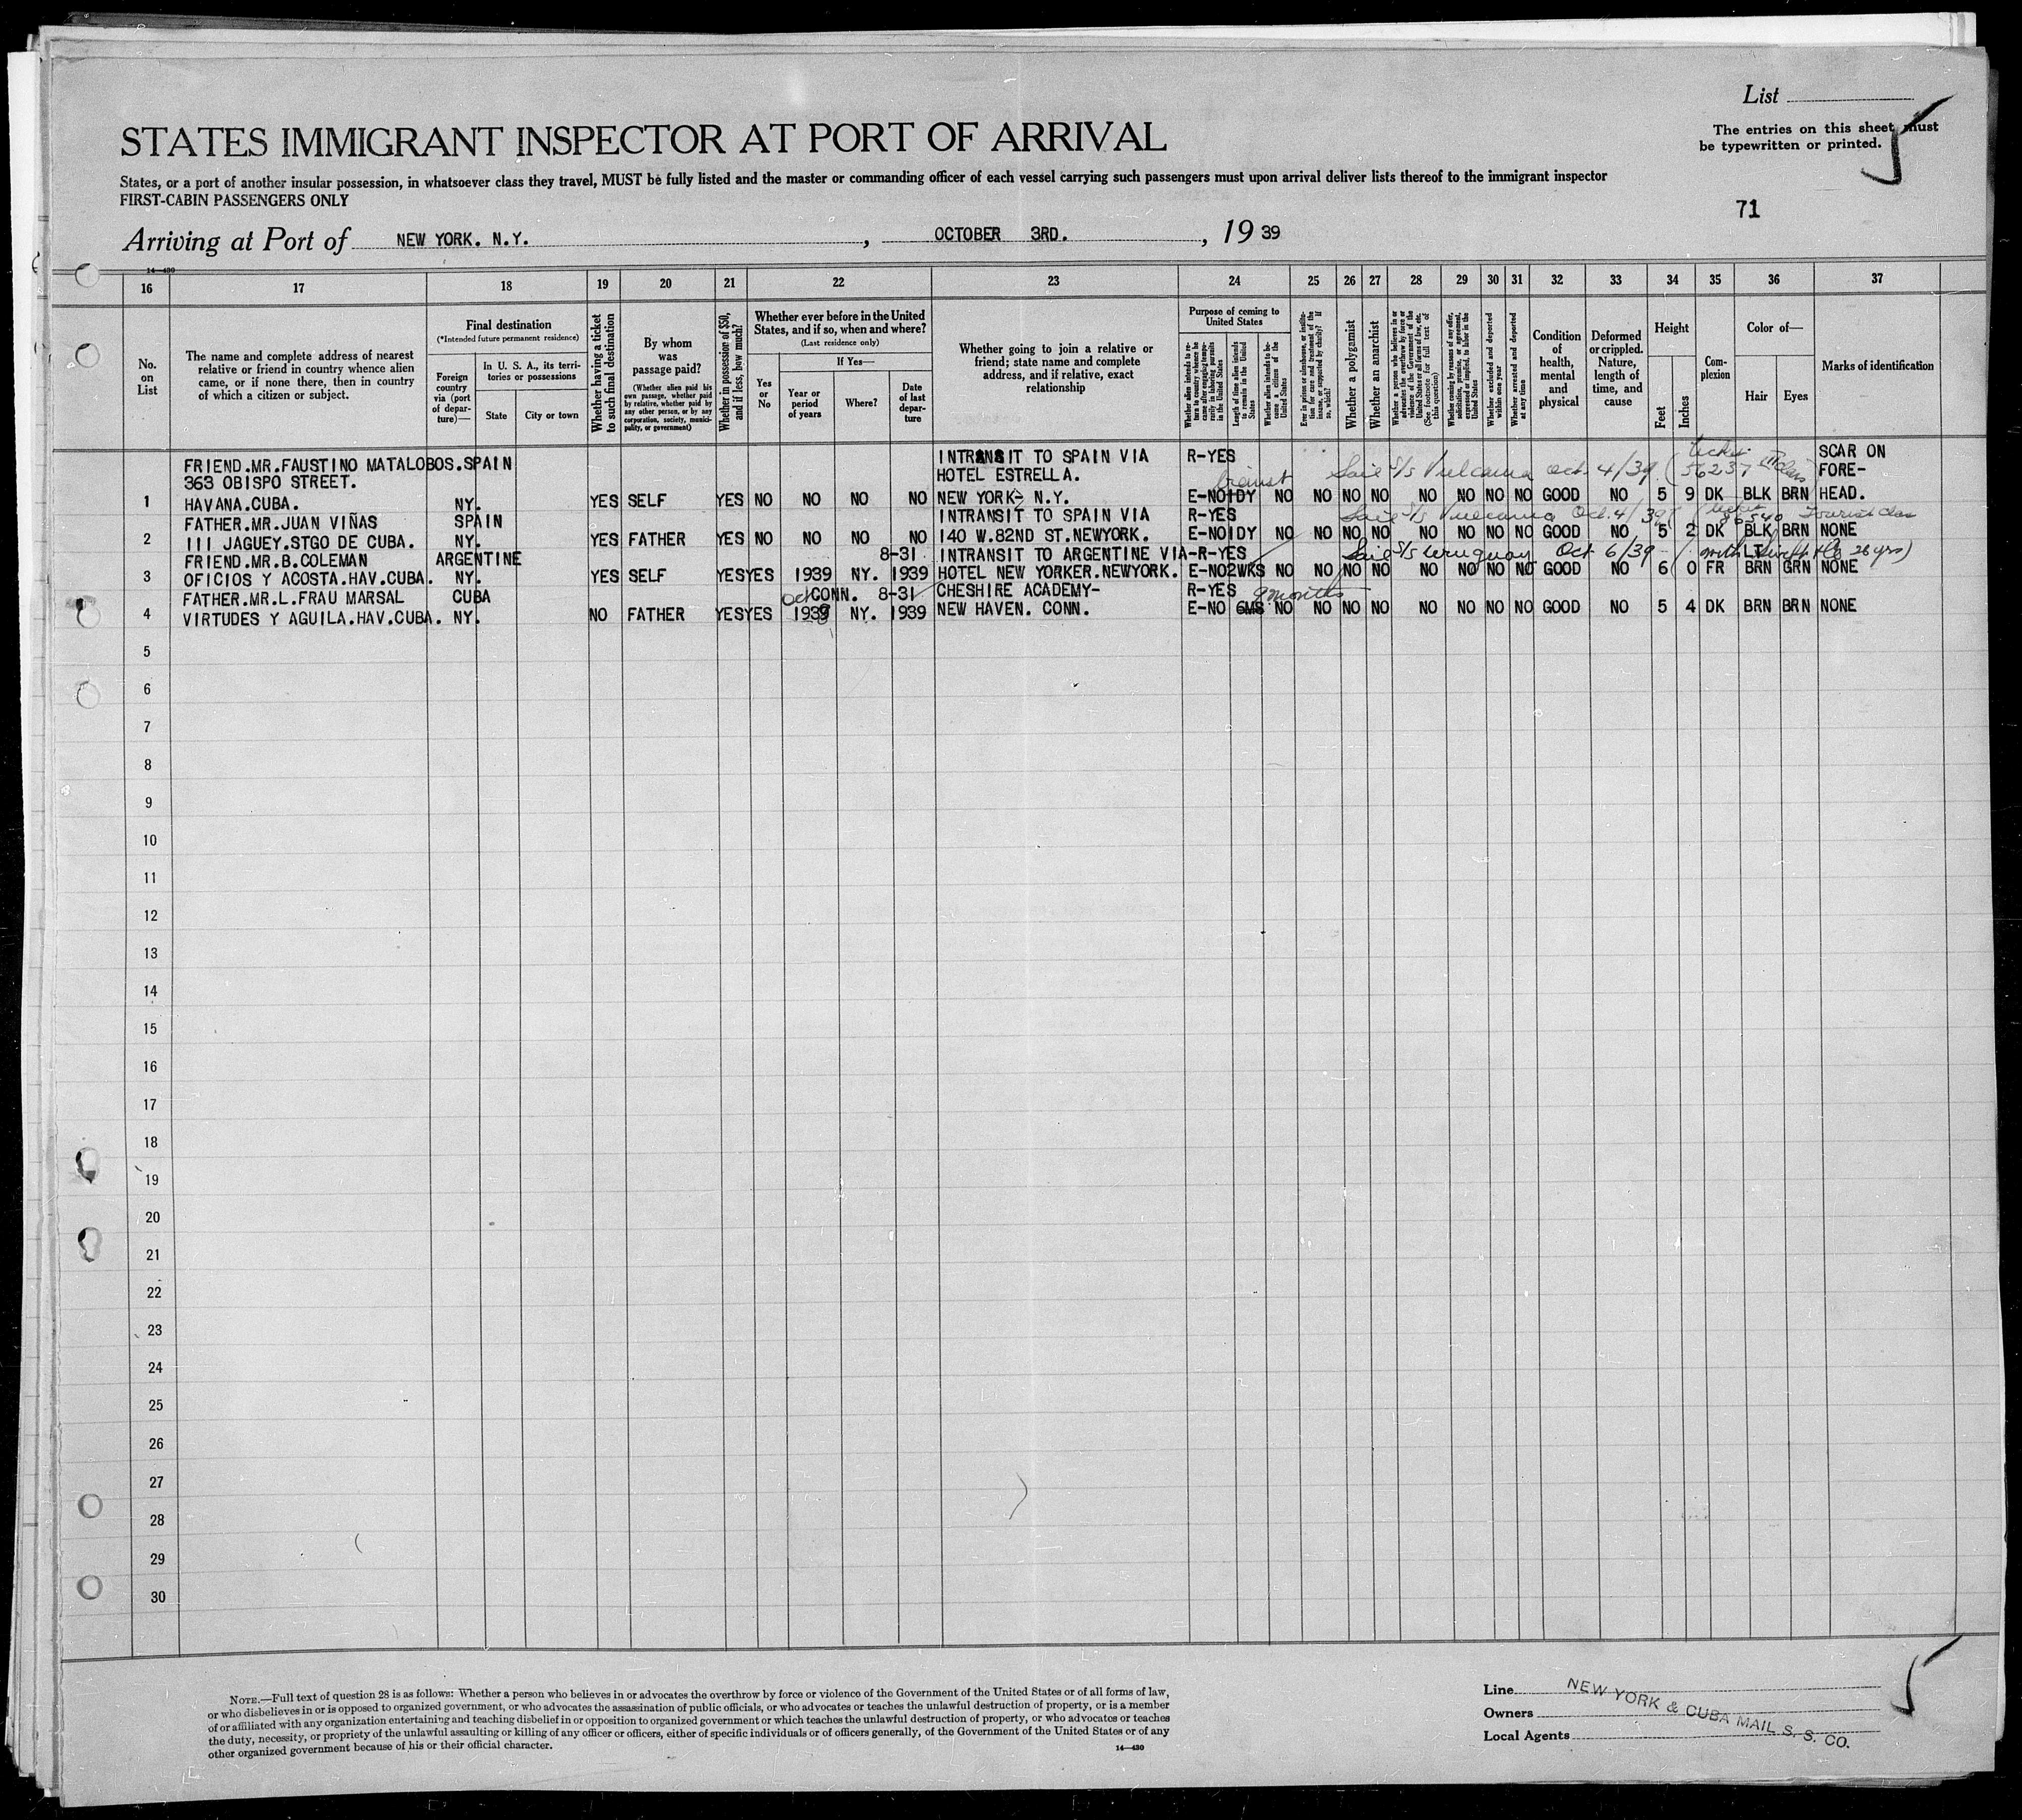 List
The entries on this sheet must
be typewritten or printed.
STATES IMMIGRANT INSPECTOR AT PORT OF ARRIVAL
States, or a port of another insular possession, in whatsoever class they travel, MUST be fully listed and the master or commanding officer of each vessel carrying such passengers must upon arrival deliver lists thereof to the immigrant inspector
FIRST-CABIN PASSENGERS ONLY
71
Arriving at Port of NEW YORK. N.Y. , OCTOBER 3RD. , 19 39
14—430
16 17 18 19 20 21 22 23 24 25 26 27 28 29 30 31 32 33 34 35 36 37
No. on List
The name and complete address of nearest relative or friend in country whence alien came, or if none there, then in country of which a citizen or subject.
Final destination
(*Intended future permanent residence)
Foreign country via (port of departure)—
In U. S. A., its territories or possessions
State
City or town
Whether having a ticket to such final destination
By whom was passage paid?
(Whether alien paid his own passage, whether paid by relative, whether paid by any other person, or by any corporation, society, municipality, or government)
Whether in possession of $50, and if less, how much?
Whether ever before in the United States, and if so, when and where?
(Last residence only)
Yes or No
If Yes—
Year or period of years
Where?
Date of last departure
Whether going to join a relative or friend; state name and complete address, and if relative, exact relationship
Purpose of coming to United States
Length of time alien intends to remain in the United States
Whether alien intends to become a citizen of the United States
Whether a polygamist
Whether an anarchist
Whether excluded and deported within one year
Whether arrested and deported at any time
Condition of health, mental and physical
Deformed or crippled. Nature, length of time, and cause
Height
Feet
Inches
Complexion
Color of—
Hair
Eyes
Marks of identification
INTRANSIT TO SPAIN VIA R-YES SCAR ON
FRIEND.MR.FAUSTINO MATALOBOS.SPAIN HOTEL ESTRELLA. transit Sail S/S Vulcania Oct. 4/39 (ticket 56237 III class) FORE-
363 OBISPO STREET.
1 HAVANA.CUBA. NY. YES SELF YES NO NO NO NO NEW YORK- N.Y. E-NO 1DY NO NO NO NO NO NO NO NO GOOD NO 5 9 DK BLK BRN HEAD.
FATHER.MR.JUAN VIÑAS SPAIN INTRANSIT TO SPAIN VIA R-YES Sail S/S Vulcania Oct. 4/39 (ticket 86540 Tourist class
2 111 JAGUEY.STGO DE CUBA. NY. YES FATHER YES NO NO NO NO 140 W.82ND ST.NEWYORK. E-NO 1DY NO NO NO NO NO NO NO NO GOOD NO 5 2 DK BLK BRN NONE
FRIEND.MR.B.COLEMAN ARGENTINE 8-31 INTRANSIT TO ARGENTINE VIA-R-YES Sail S/S Uruguay Oct 6/39 LT
3 OFICIOS Y ACOSTA.HAV.CUBA. NY. YES SELF YES YES 1939 NY. 1939 HOTEL NEW YORKER.NEWYORK. E-NO 2WKS NO NO NO NO NO NO NO NO GOOD NO 6 0 FR BRN GRN NONE
FATHER.MR.L.FRAU MARSAL CUBA Oct CONN. 8-31 CHESHIRE ACADEMY- R-YES 8 months
4 VIRTUDES Y AGUILA.HAV.CUBA. NY. NO FATHER YES YES 1938 NY. 1939 NEW HAVEN. CONN. E-NO 6MS NO NO NO NO NO NO NO NO GOOD NO 5 4 DK BRN BRN NONE
5
6
7
8
9
10
11
12
13
14
15
16
17
18
19
20
21
22
23
24
25
26
27
28
29
30
NOTE.—Full text of question 28 is as follows: Whether a person who believes in or advocates the overthrow by force or violence of the Government of the United States or of all forms of law,
or who disbelieves in or is opposed to organized government, or who advocates the assassination of public officials, or who advocates or teaches the unlawful destruction of property, or is a member
of or affiliated with any organization entertaining and teaching disbelief in or opposition to organized government or which teaches the unlawful destruction of property, or who advocates or teaches
the duty, necessity, or propriety of the unlawful assaulting or killing of any officer or officers, either of specific individuals or of officers generally, of the Government of the United States or of any
other organized government because of his or their official character.
14—430
Line
Owners
Local Agents
NEW YORK & CUBA MAIL S. S. CO.